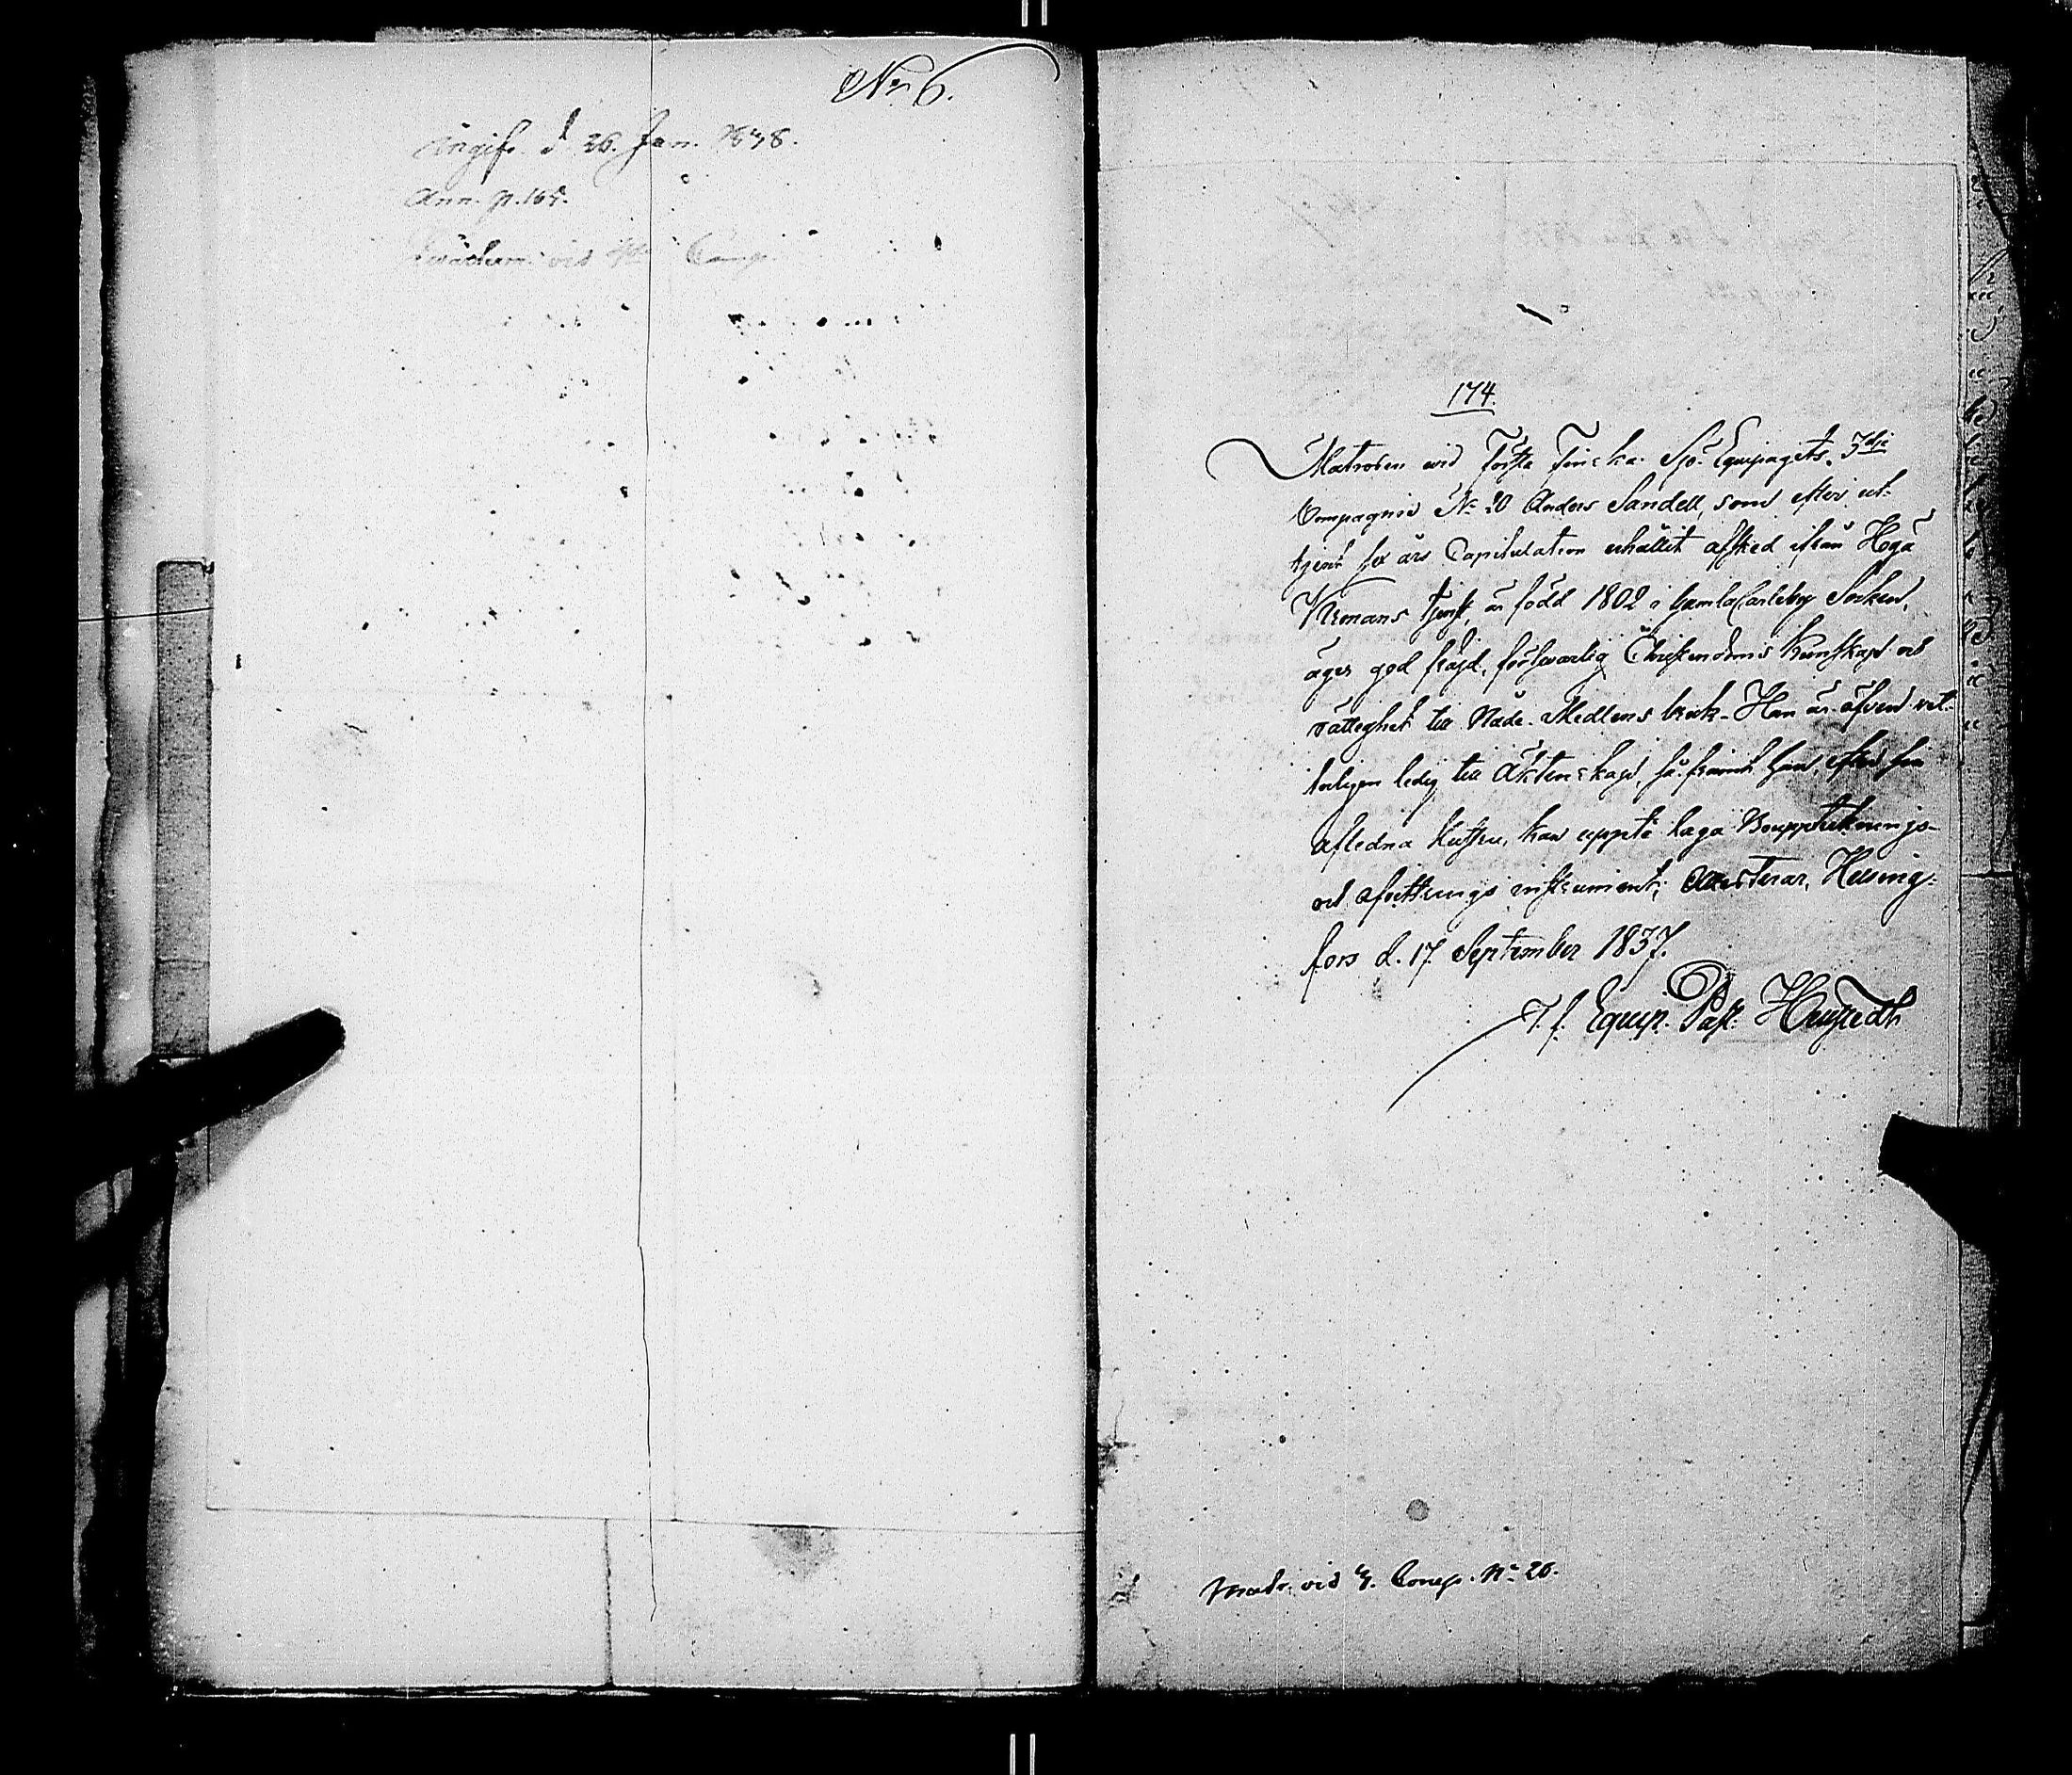 No 6.
Ingift d 26. Jan. 1838.
Ann. p. 165.
vid Comp.
174.
Matrosen vid Första Finska Sjö-Equipagets 3dje
Compagnie No 20 Anders Sandell, som efter ut-
tjent sex års Capitulation erhållit afsked ifrån Höga
Kronans tjenst, är född 1802 i Gamla Carleby Socken,
äger god frejd, försvarlig Christendoms kunskap och
rättighet till Nåde-Medlens bruk. Han är äfven vet-
terligen ledig till Äktenskap, så framt han, efter sin
aflidna Hustru, kan uppte laga Bouppteknings-
och afvittrings instrument; attesterar, Helsing-
fors d. 17 September 1837.
T. f. Equip. Past.
Matr. vid 3. Comp. No 20.